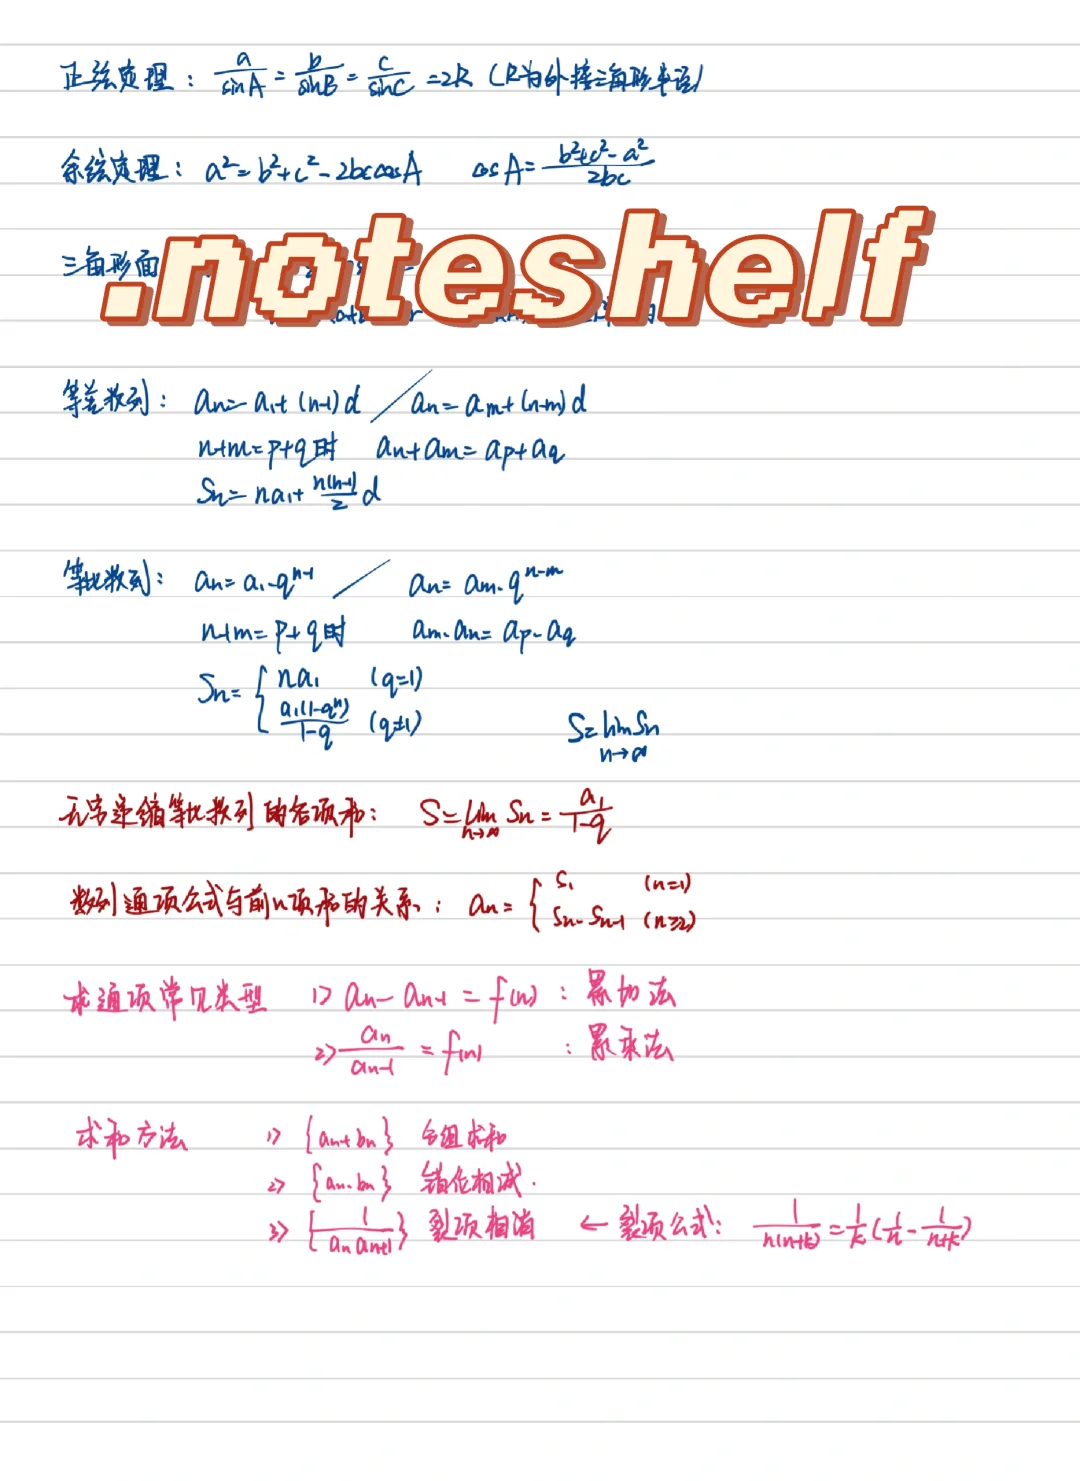 正弦定理： a/sinA = b/sinB = c/sinC = 2R （R为外接三角形半径）
余弦定理： a²=b²+c²-2bccosA cosA= (b²+c²-a²)/2bc
.noteshelf
三角形面
等差数列： an=a1+(n-1)d / an=am+(n-m)d
n+m=p+q时 an+am=ap+aq
Sn=na1+ n(n-1)/2 d
等比数列： an=a1·q^(n-1) / an=am·q^(n-m)
n+m=p+q时 am·an=ap·aq
Sn= { na1 (q=1)
a1(1-q^n)/(1-q) (q≠1) S=lim Sn n→∞
无穷递缩等比数列的各项和： S=lim n→∞ Sn= a1/(1-q)
数列通项公式与前n项和的关系： an= { S1 (n=1)
Sn-Sn-1 (n≥2)
求通项常见类型 1> an-an-1=f(n)： 累加法
2> an/an-1 =f(n) ： 累乘法
求和方法 1> {an+bn} 分组求和
2> {an·bn} 错位相减.
3> {1/(an an+1)} 裂项相消 ← 裂项公式： 1/(n(n+k)) = 1/k (1/n - 1/(n+k))